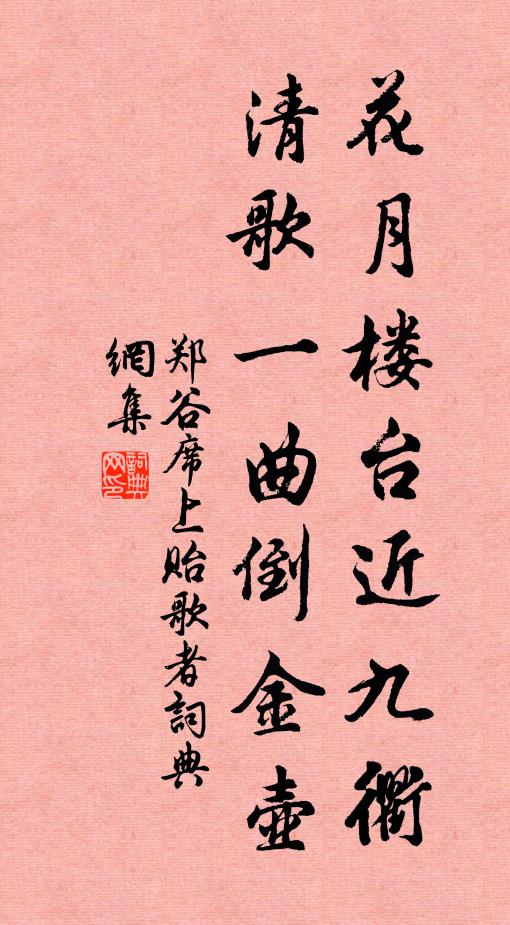 花月楼台近九衢
清歌一曲倒金壶
郑谷席上贻歌者詞典
網集
詞典
网印